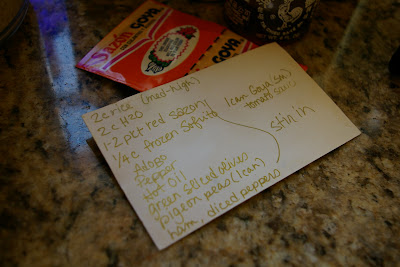 Sazón GOYA
GOYA
2c rice (med-high)
2c H2O
1-2 pkt red sazon
1/4 c frozen sofrito
Adobo
Pepper
Hot Oil
green sliced olives
pigeon peas (1 can)
ham, diced peppers
1 can Goya (sm)
tomato sauce
stir in